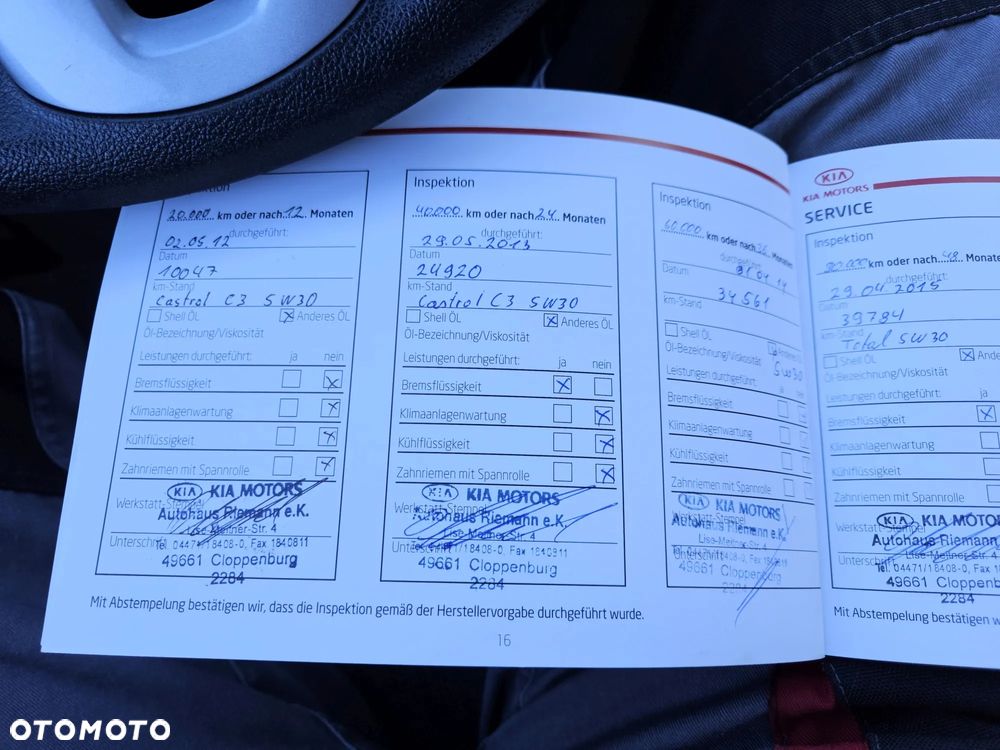 Inspektion
20.000 km oder nach 12 Monaten
durchgeführt:
02.05.12
Datum
10047
km-Stand
Castrol C3 5W30
Shell ÖL Anderes ÖL
Öl-Bezeichnung/Viskosität
Leistungen durchgeführt: ja nein
Bremsflüssigkeit
Klimaanlagenwartung
Kühlflüssigkeit
Zahnriemen mit Spannrolle
KIA KIA MOTORS
Werkstatt-Stempel
Autohaus Riemann e.K.
Lise-Meitner-Str. 4
Unterschrift
Tel. 04471/18408-0, Fax 1840811
49661 Cloppenburg
2284
Inspektion
40.000 km oder nach 24 Monaten
durchgeführt:
29.05.2013
Datum
24920
km-Stand
Castrol C3 5W30
Shell ÖL Anderes ÖL
Öl-Bezeichnung/Viskosität
Leistungen durchgeführt: ja nein
Bremsflüssigkeit
Klimaanlagenwartung
Kühlflüssigkeit
Zahnriemen mit Spannrolle
KIA KIA MOTORS
Werkstatt-Stempel
Autohaus Riemann e.K.
Lise-Meitner-Str. 4
Unterschrift
Tel. 04471/18408-0, Fax 1840811
49661 Cloppenburg
2284
Inspektion
60.000 km oder nach 36 Monaten
durchgeführt:
Datum
34561
km-Stand
Shell ÖL Anderes ÖL
Öl-Bezeichnung/Viskosität
5W30
Leistungen durchgeführt: ja
Bremsflüssigkeit
Klimaanlagenwartung
Kühlflüssigkeit
Zahnriemen mit Spannrolle
KIA KIA MOTORS
Werkstatt-Stempel
Autohaus Riemann e.K.
Lise-Meitner-Str. 4
Unterschrift
Tel. 04471/18408-0, Fax 1840811
49661 Cloppenburg
Mit Abstempelung bestätigen wir, dass die Inspektion gemäß der Herstellervorgabe durchgeführt wurde.
16
KIA
KIA MOTORS
SERVICE
Inspektion
km oder nach 48 Monate
durchgeführt:
29.04.2015
Datum
39784
km-Stand
Total 5W30
Shell ÖL Anderes
Öl-Bezeichnung/Viskosität
Leistungen durchgeführt: ja
Bremsflüssigkeit
Klimaanlagenwartung
Kühlflüssigkeit
Zahnriemen mit Spannrolle
KIA KIA MOTO
Werkstatt-Stempel
Autohaus Riemann
Lise-Meitner-Str. 4
Unterschrift
Tel. 04471/18408-0, Fax 1
49661 Cloppenburg
2284
Mit Abstempelung bestätigen w
OTOMOTO